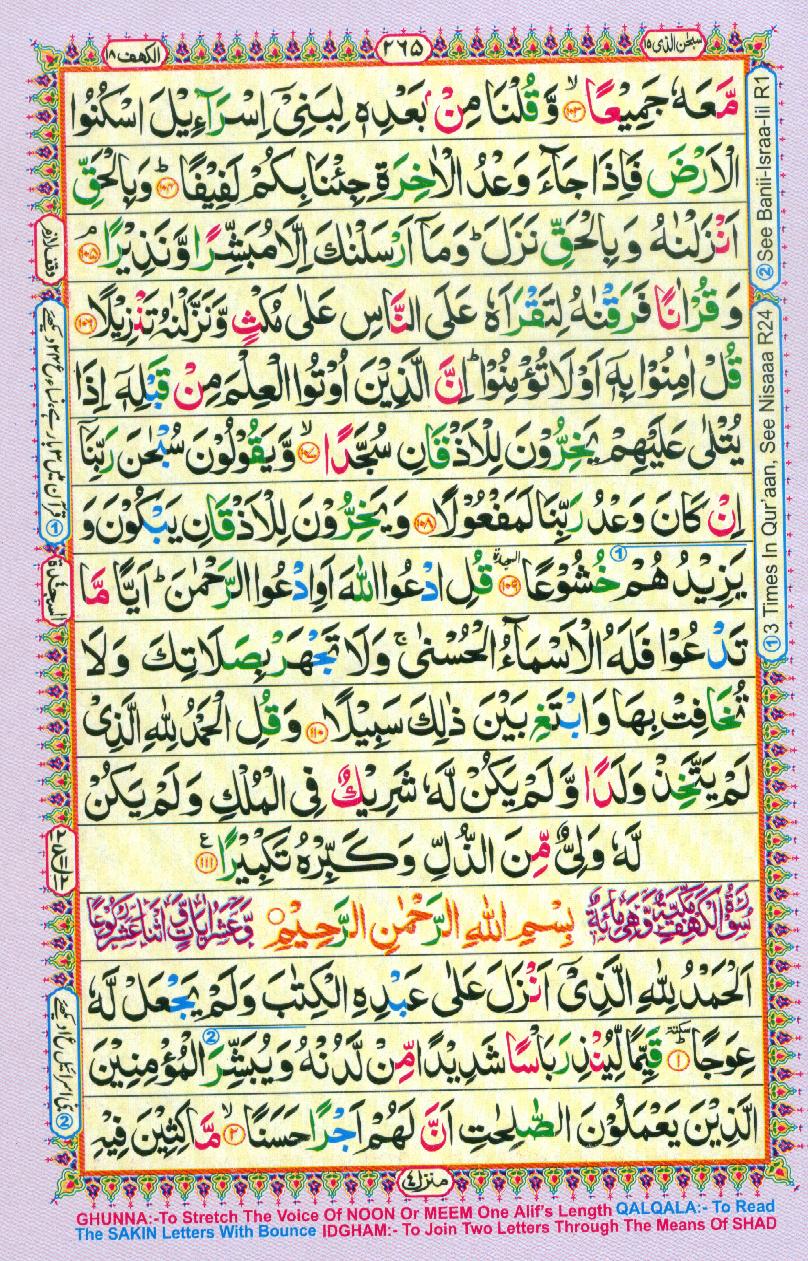 سبحٰن الذی ۱۵
۲۶۵
الکهف ۱۸
مَّعَهٗ جَمِیْعًاۙ۝۱۰۳ وَّ قُلْنَا مِنْۢ بَعْدِهٖ لِبَنِیْۤ اِسْرَآءِیْلَ اسْكُنُوا
الْاَرْضَ فَاِذَا جَآءَ وَعْدُ الْاٰخِرَةِ جِئْنَا بِكُمْ لَفِیْفًاؕ۝۱۰۴ وَ بِالْحَقِّ
اَنْزَلْنٰهُ وَ بِالْحَقِّ نَزَلَؕ وَ مَاۤ اَرْسَلْنٰكَ اِلَّا مُبَشِّرًا وَّ نَذِیْرًاۘ۝۱۰۵
وَ قُرْاٰنًا فَرَقْنٰهُ لِتَقْرَاَهٗ عَلَی النَّاسِ عَلٰی مُكْثٍ وَّ نَزَّلْنٰهُ تَنْزِیْلًا۝۱۰۶
قُلْ اٰمِنُوْا بِهٖۤ اَوْ لَا تُؤْمِنُوْاؕ اِنَّ الَّذِیْنَ اُوْتُوا الْعِلْمَ مِنْ قَبْلِهٖۤ اِذَا
یُتْلٰی عَلَیْهِمْ یَخِرُّوْنَ لِلْاَذْقَانِ سُجَّدًاۙ۝۱۰۷ وَّ یَقُوْلُوْنَ سُبْحٰنَ رَبِّنَاۤ
اِنْ كَانَ وَعْدُ رَبِّنَا لَمَفْعُوْلًا۝۱۰۸ وَ یَخِرُّوْنَ لِلْاَذْقَانِ یَبْكُوْنَ وَ
یَزِیْدُهُمْ خُشُوْعًا۝۱۰۹ السجدة قُلِ ادْعُوا اللّٰهَ اَوِ ادْعُوا الرَّحْمٰنَؕ اَیًّا مَّا
تَدْعُوْا فَلَهُ الْاَسْمَآءُ الْحُسْنٰیۚ وَ لَا تَجْهَرْ بِصَلَاتِكَ وَ لَا
تُخَافِتْ بِهَا وَ ابْتَغِ بَیْنَ ذٰلِكَ سَبِیْلًا۝۱۱۰ وَ قُلِ الْحَمْدُ لِلّٰهِ الَّذِیْ
لَمْ یَتَّخِذْ وَلَدًا وَّ لَمْ یَكُنْ لَّهٗ شَرِیْكٌ فِی الْمُلْكِ وَ لَمْ یَكُنْ
لَّهٗ وَلِیٌّ مِّنَ الذُّلِّ وَ كَبِّرْهُ تَكْبِیْرًا۝۱۱۱ ع
سُوْرَةُ الْكَهْفِ مَكِّیَّةٌ وَّهِیَ مِائَةٌ بِسْمِ اللّٰهِ الرَّحْمٰنِ الرَّحِیْمِ وَّعَشْرُ اٰیَاتٍ وَّاثْنَا عَشَرَ رُكُوْعًا
اَلْحَمْدُ لِلّٰهِ الَّذِیْۤ اَنْزَلَ عَلٰی عَبْدِهِ الْكِتٰبَ وَ لَمْ یَجْعَلْ لَّهٗ
عِوَجًاؕ۝۱ سكتة قَیِّمًا لِّیُنْذِرَ بَاْسًا شَدِیْدًا مِّنْ لَّدُنْهُ وَ یُبَشِّرَ الْمُؤْمِنِیْنَ
الَّذِیْنَ یَعْمَلُوْنَ الصّٰلِحٰتِ اَنَّ لَهُمْ اَجْرًا حَسَنًاۙ۝۲ مَّاكِثِیْنَ فِیْهِ
منزل ۴
② See Banii-Israa-Iil R1
① 3 Times In Qur'aan, See Nisaaa R24
وقف لازم
السجدة
GHUNNA:-To Stretch The Voice Of NOON Or MEEM One Alif's Length QALQALA:- To Read
The SAKIN Letters With Bounce IDGHAM:- To Join Two Letters Through The Means Of SHAD